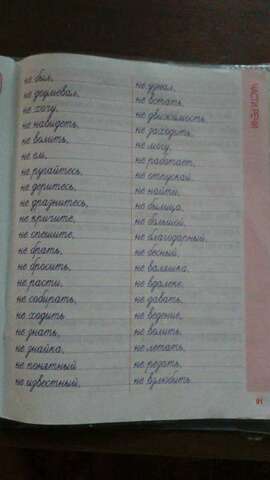 не был,
не додумевал,
не хочу,
не навидеть,
не волить,
не ем,
не ругайтесь,
не деритесь,
не дразнитесь,
не кричите,
не спешите,
не брать,
не бросить,
не расти,
не собирать,
не ходить
не знать,
не знайка,
не понятный
не известный,
не узнал,
не встать,
не движимость
не заходить,
не могу,
не работает,
не отпускай,
не найти,
не былица,
не большой,
не благодарный,
не бесный,
не валяшка,
не вдалеке,
не давать,
не ведение,
не волить,
не летать,
не резать,
не взлюбить.
ЧАСТИ РЕЧИ
91